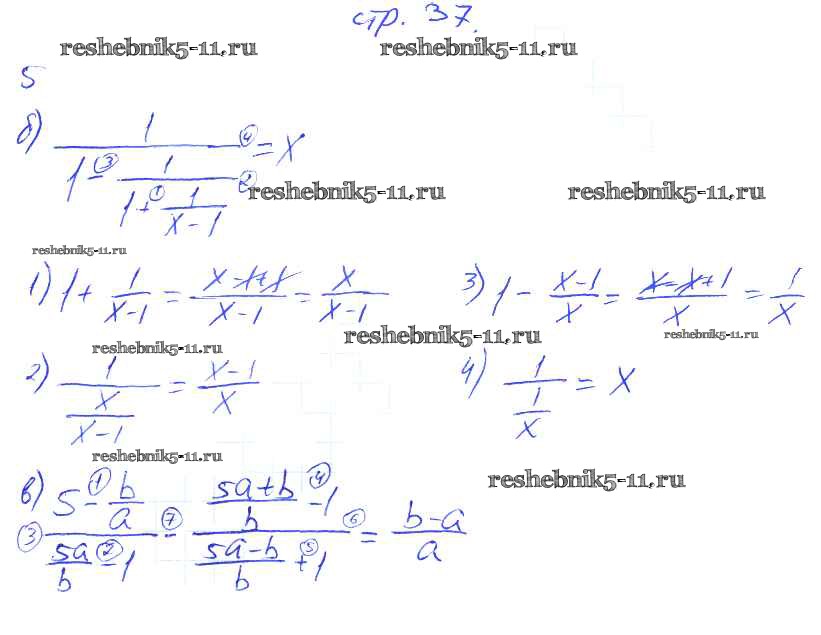 стр. 37.
reshebnik5-11.ru reshebnik5-11.ru
5
б) 1/(1 -③ 1/(1 +① 1/(x-1)) ②) ④ = x
reshebnik5-11.ru reshebnik5-11.ru
reshebnik5-11.ru
1) 1 + 1/(x-1) = (x-1+1)/(x-1) = x/(x-1) 3) 1 - (x-1)/x = (x-x+1)/x = 1/x
reshebnik5-11.ru reshebnik5-11.ru
reshebnik5-11.ru
2) 1/(x/(x-1)) = (x-1)/x 4) 1/(1/x) = x
reshebnik5-11.ru
reshebnik5-11.ru
в) ③ (5 -① b/a)/(5a/b -② 1) -⑦ ((5a+b)/b -④ 1)/((5a-b)/b +⑤ 1) ⑥ = (b-a)/a